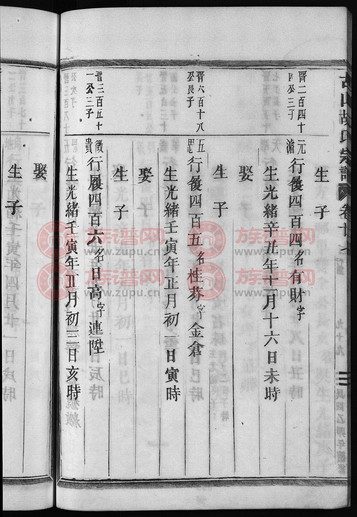 古山胡氏宗譜
卷十七
晉二百四十
四公三子
元
滴
行優四百四名有財字
生光緒辛丑年十月十六日未時
娶
生子
晉六百十八
公長子
行優四百五名桂芬字金倉
生光緒壬寅年正月初二日寅時
娶
生子
晉三百五十
一公三子
行優四百六名日高字連陞
生光緒壬寅年正月初三日亥時
娶
生子
娶
生子
族谱网
www.zupu.cn